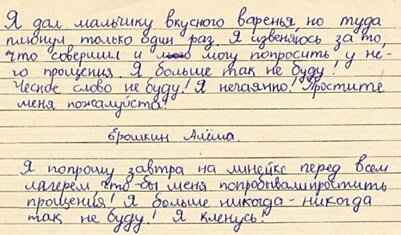 Я дал мальчику вкусного варенья но туда
плюнул только один раз. Я извеняюсь за то,
что совершил и могу попросить у не-
го прощения. Я больше так не буду!
Чесное слово не буду! Я нечаянно! Простите
меня пожалуйста!
Ерошкин Алёша.
Я попрошу завтра на линейке перед всем
лагерем что-бы меня попробывали простить
прощения! Я больше никогда-никогда
так не буду! Я кленусь!